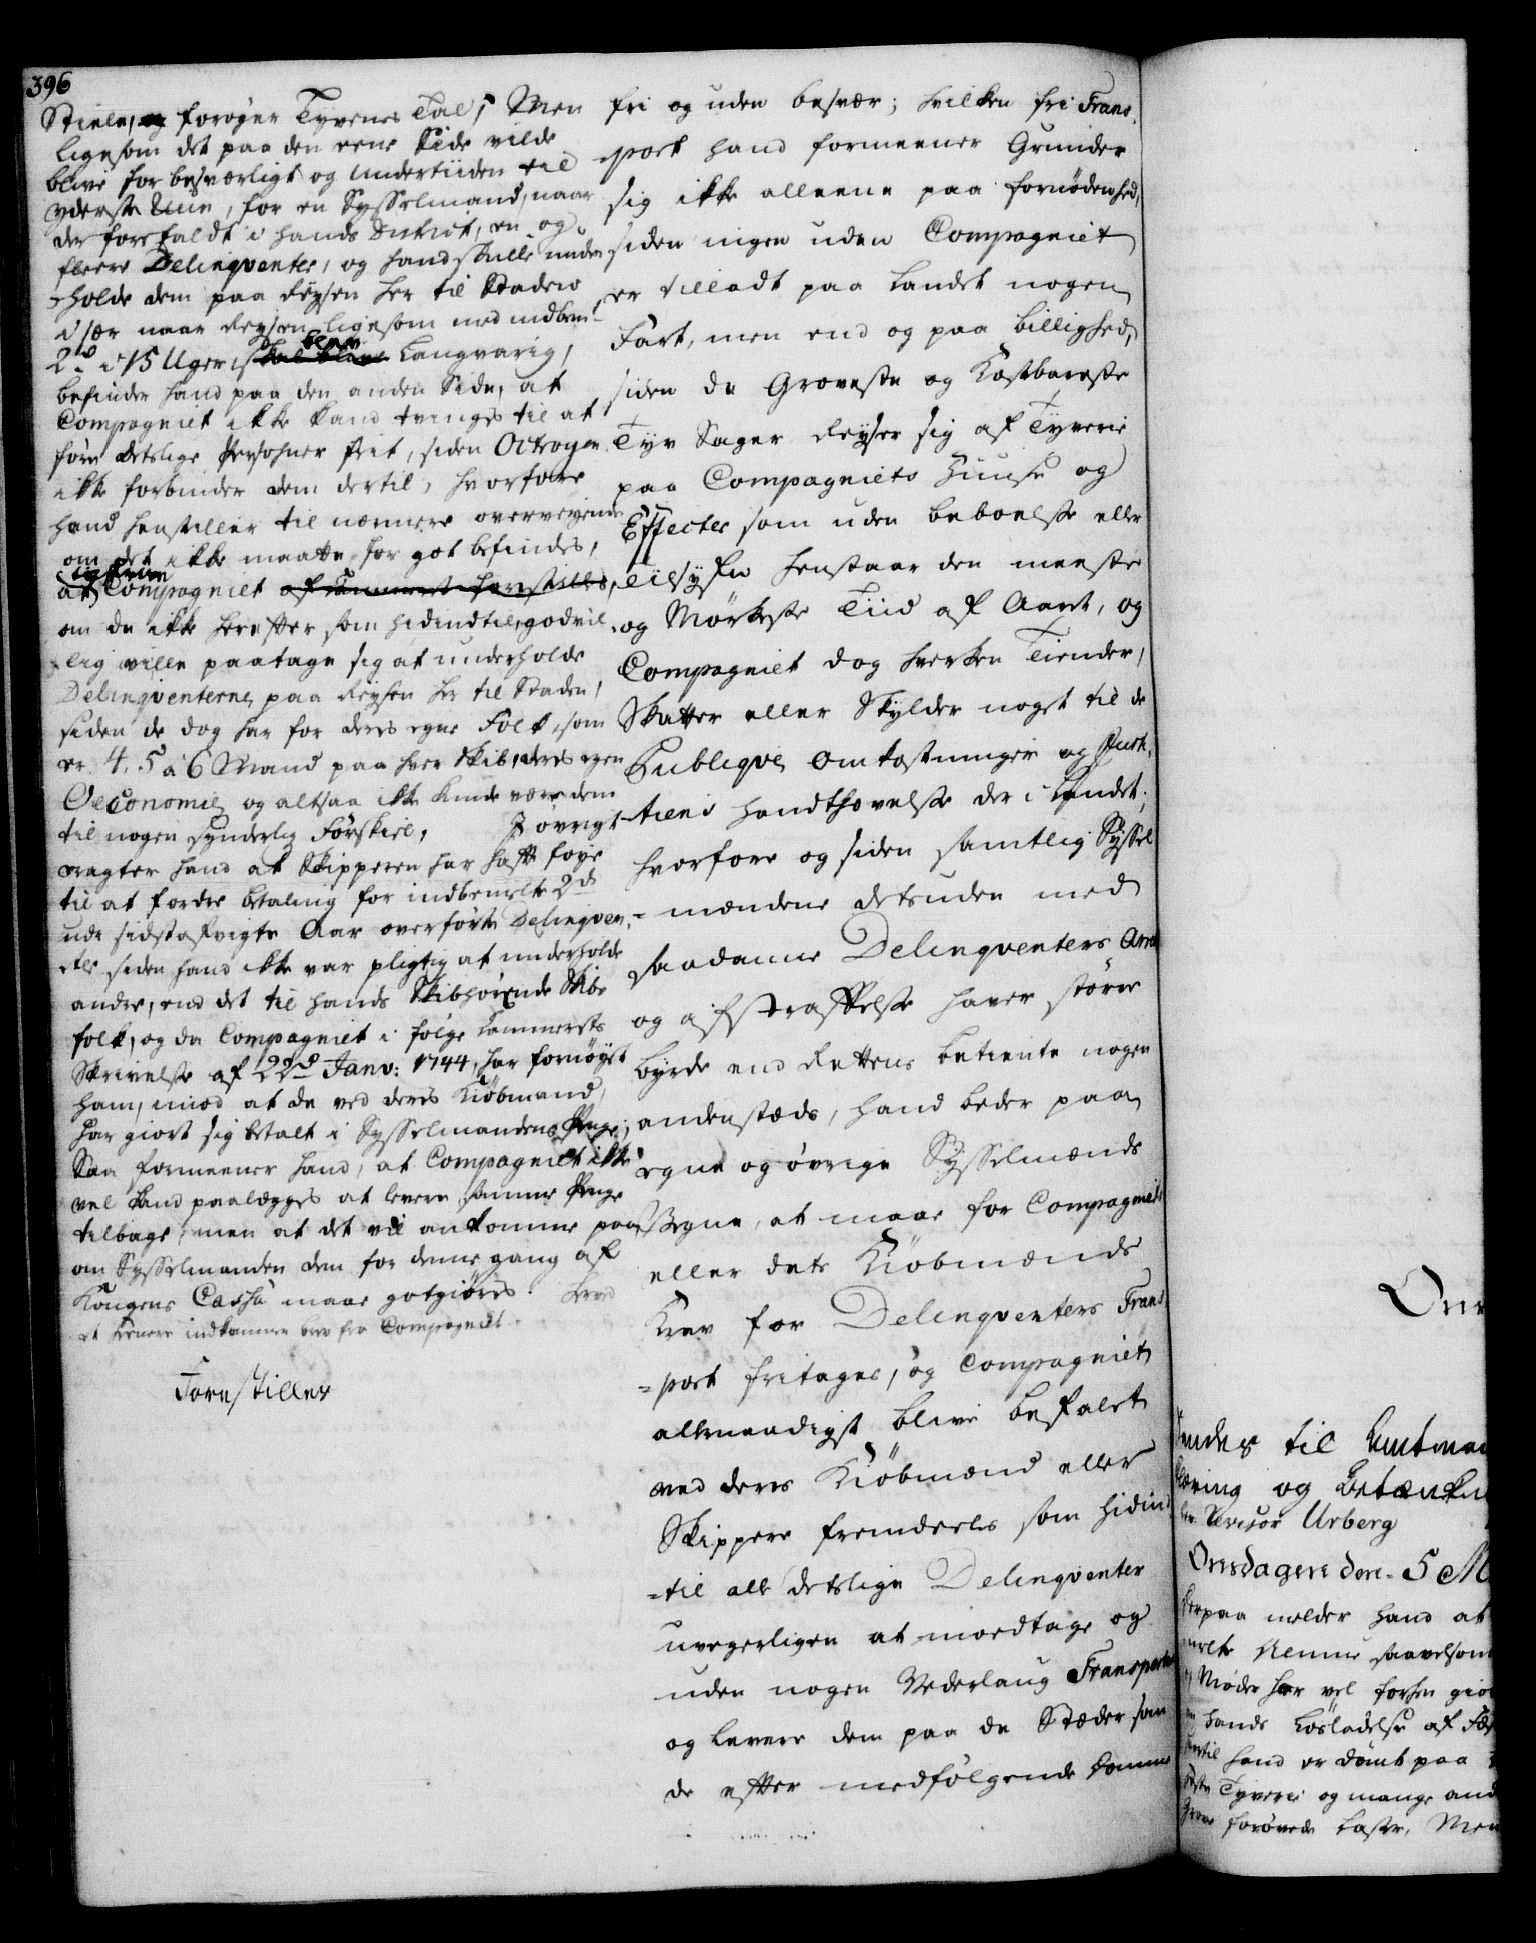 396
Stiele, og forøger Tyvenes Tal; Men
ligesom det paa den eene Side vilde
blive for besværligt og undertiiden til
yderste Ruin, for en Sysselmand, naar
der forefaldt i hands District, en og
fleere Delinqventer, og hand skulle under-
-holde dem paa Reysen her til Staden
især naar Reysen ligesom med indbem.te
2de i 15 Uger skal blive blev Langvarig,
befinder hand paa den anden Side, at
Compagniet ikke kand tvinges til at
føre detslige Persohner frit, siden Octroyen
ikke forbinder dem dertil, hvorfore
hand henstiller til nærmere overveyende
om det ikke maatte for got befindes,
at Compagniet af Cammeret forestilles,
om de ikke herefter som hidindtil, godvil-
-lig ville paatage sig at underholde
Delinqventerne paa Reysen her til Staden,
siden de dog har for deres egne Folk, som
er 4. 5 à 6 Mand paa hver Skib, deres egen
Oeconomie og altsaa ikke kunde være dem
til nogen synderlig Forskiel. I øvrigt
eragter hand at Skipperen har haft føye
til at fordre betaling for indbemelte 2de
udi sidstafvigte Aar overførte Delinqven-
-ter siden hand ikke var pligtig at underholde
andre, end det til hands Skib hørende Skibs
folk, og da Compagniet i følge Cammerets
Skrivelse af 22de Janv: 1744, har fornøyet
ham, imod at de ved deres Kiøbmand,
har giort sig betalt i Sysselmandens Penge;
Saa formeener hand, at Compagniet ikke
vel kand paalegges at levere samme Penge
tilbage, men at det vil ankomme paa,
om Sysselmanden dem for denne gang af
Kongens Cassa maae gotgiøres. herved
et senere indkommen brev fra Compagniet.
Forestilles
fri og uden besvær; hvilken fri Trans-
-port hand formeener Grunder
sig ikke alleene paa fornødenhed,
siden ingen uden Compagniet
er tilladt paa Landet nogen
Fart, men end og paa billighed,
siden de Groveste og Kostbareste
Tyv Sager Reyser sig af Tyverie
paa Compagniets Huuse og
Effecter som uden beboelse eller
Tilsyn henstaar den meeste
og Mørkeste Tiid af Aaret, og
Compagniet dog hverken Tiender,
Skatter eller Skylder noget til de
Publiqve omkostninger og Justi-
-tiens handthævelse der i Landet;
hvorfore og siden samtlig Syssel
-mændene desuden med
saadanne Delinqventers Arrest
og afstraffelse haver større
byrde end Rettens betiente nogen
andenstæds, hand beder paa
egne og øvrige Sysselmænds
Vegne, at maae for Compagniets
eller dets Kiøbmænds
Krav for Delinqventers Trans
-port fritages, og Compagniet
allernaadigst blive befalet
ved deres Kiøbmænd eller
Skippere fremdeeles som hidind
-til alle detslige Delinqventer
uvegerligen at imodtage og
uden nogen Vederlaug Transportere
og levere dem paa de Stæder som
de efter medfølgende Domme
endes til Amtman
læring og Betænkn
Revisor Urberg
Onsdagen den 5 M
herpaa melder hand at
melte saavelsom
Møder har vel forhen gior
hands Løsladelse af Fæs
hand er dømt paa
Tyverie og mange and
forøvede Laster, Men